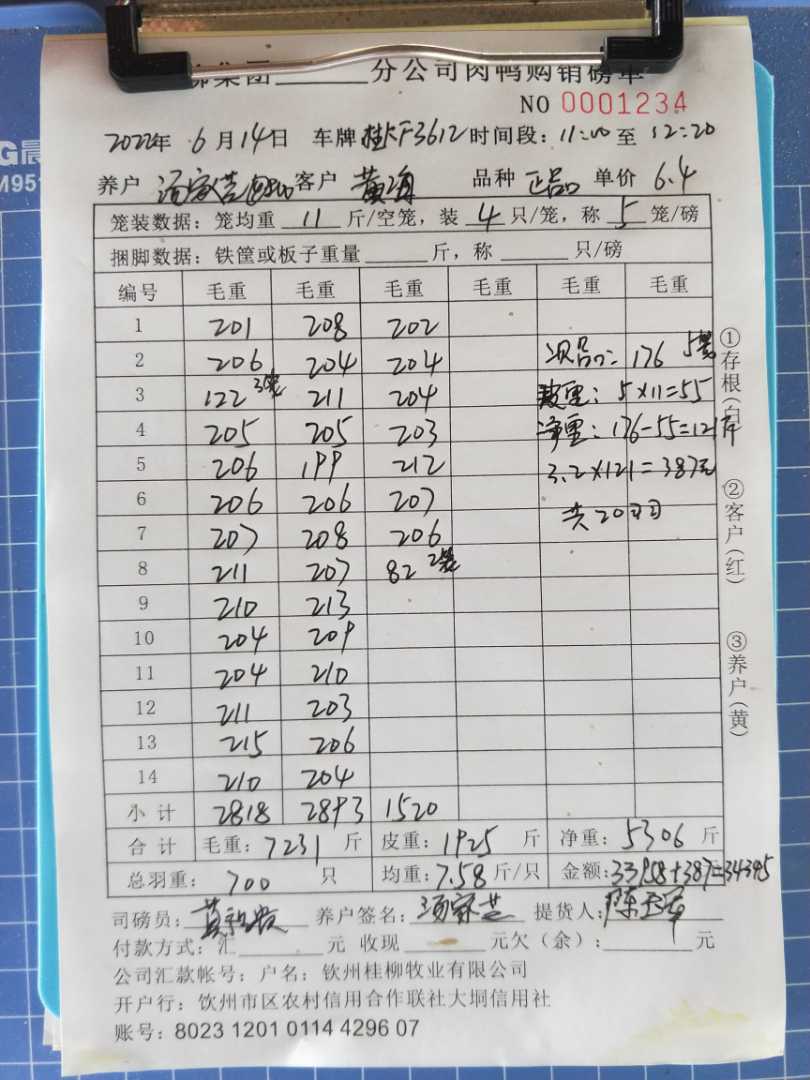 柳集团______分公司肉鸭购销磅单
NO 0001234
2022年 6月14日 车牌桂KF3612时间段：11:00至12:20
养户 汤家芸 客户 黄海 品种 正品 单价 6.4
笼装数据：笼均重 11 斤/空笼，装 4 只/笼，称 5 笼/磅
捆脚数据：铁筐或板子重量______斤，称______只/磅
编号 毛重 毛重 毛重 毛重 毛重 毛重
1 201 208 202
2 206 204 204 次品：176 5笼
3 122 3笼 211 204 皮重：5×11=55
4 205 205 203 净重：176-55=121斤
5 206 199 212 3.2×121=387元
6 206 206 207 共20羽
7 207 208 206
8 211 207 82 2笼
9 210 213
10 204 209
11 204 210
12 211 203
13 215 206
14 210 204
小计 2818 2893 1520
合计 毛重：7231 斤 皮重：1925 斤 净重：5306 斤
总羽重：700 只 均重：7.58斤/只 金额：33958+387=34345
司磅员： 养户签名：汤家芸 提货人：
付款方式：汇______元 收现______元欠（余）：______元
公司汇款帐号：户名：钦州桂柳牧业有限公司
开户行：钦州市区农村信用合作联社大垌信用社
账号：8023 1201 0114 4296 07
①存根（白）
②客户（红）
③养户（黄）
M951